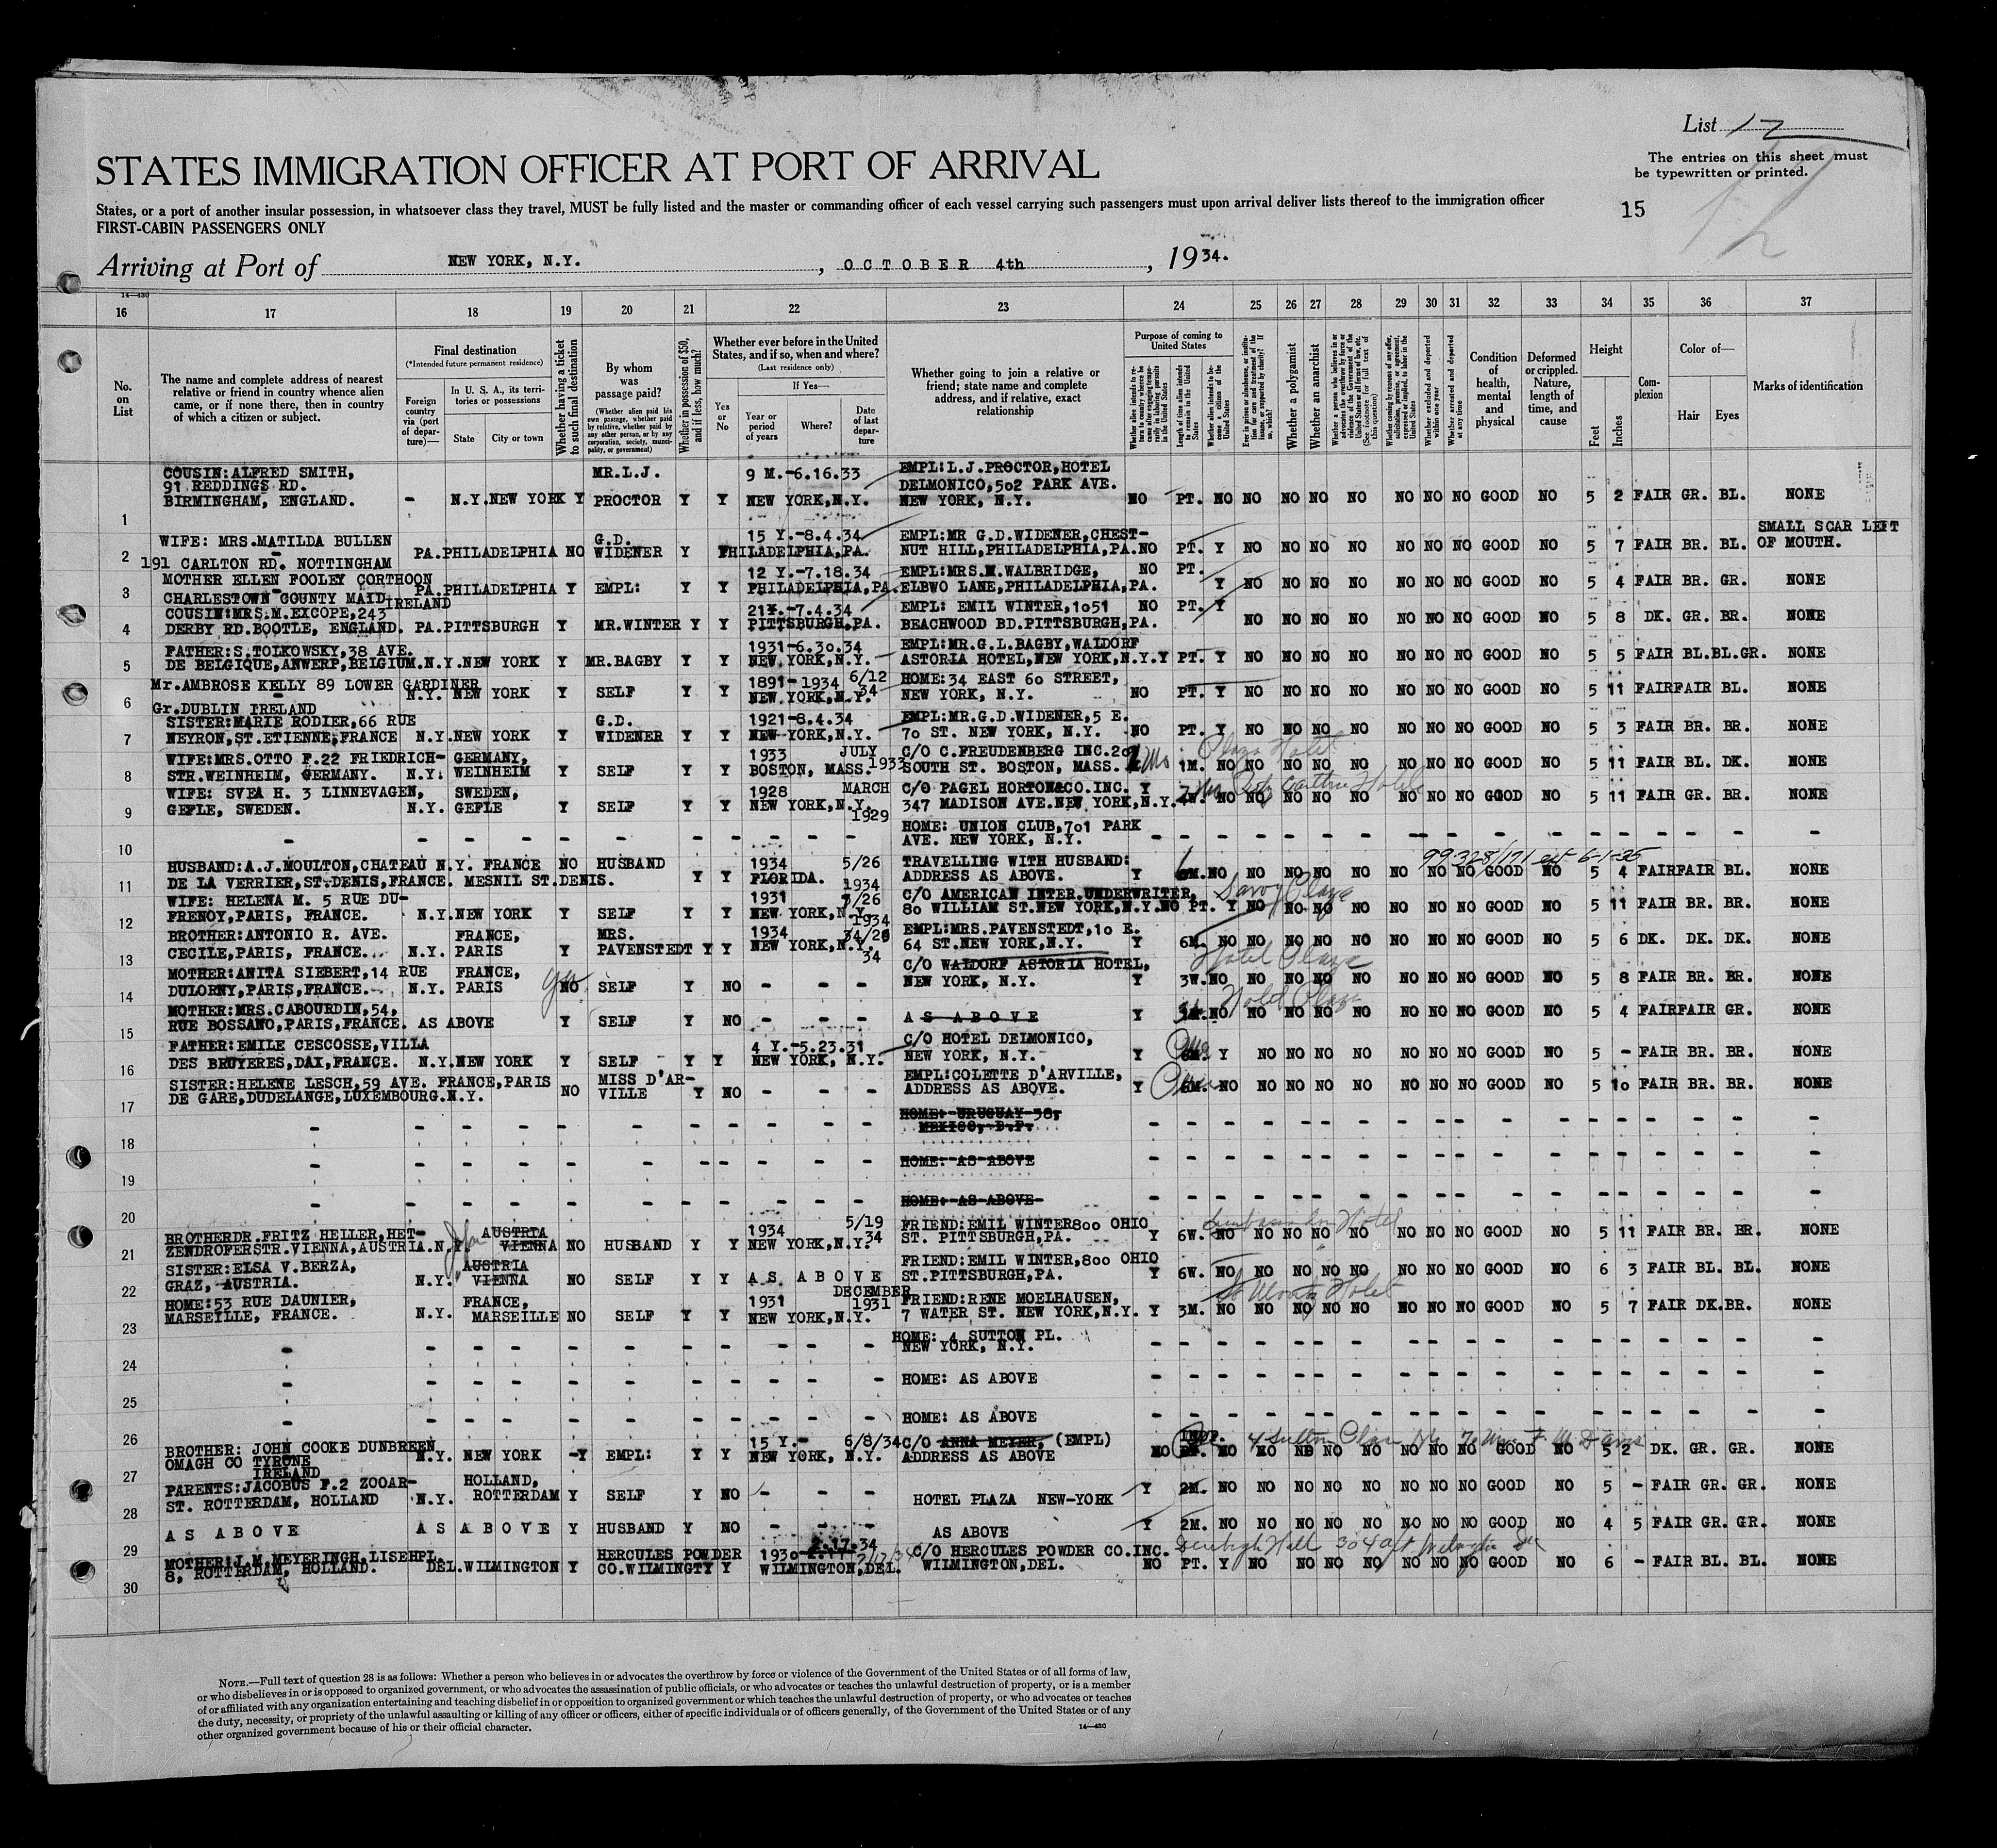 List 12
STATES IMMIGRATION OFFICER AT PORT OF ARRIVAL
The entries on this sheet must
be typewritten or printed.
States, or a port of another insular possession, in whatsoever class they travel, MUST be fully listed and the master or commanding officer of each vessel carrying such passengers must upon arrival deliver lists thereof to the immigration officer
FIRST-CABIN PASSENGERS ONLY
15
12
Arriving at Port of NEW YORK, N.Y. , OCTOBER 4th , 1934.
14—430
16 17 18 19 20 21 22 23 24 25 26 27 28 29 30 31 32 33 34 35 36 37
No. on List
The name and complete address of nearest relative or friend in country whence alien came, or if none there, then in country of which a citizen or subject.
Final destination
(*Intended future permanent residence)
Foreign country via (port of departure)—
In U. S. A., its territories or possessions
State City or town
Whether having a ticket to such final destination
By whom was passage paid?
(Whether alien paid his own passage, whether paid by relative, whether paid by any other person, or by any corporation, society, municipality, or government)
Whether in possession of $50, and if less, how much?
Whether ever before in the United States, and if so, when and where?
(Last residence only)
Yes or No
If Yes—
Year or period of years Where? Date of last departure
Whether going to join a relative or friend; state name and complete address, and if relative, exact relationship
Purpose of coming to United States
Whether a polygamist
Whether an anarchist
Condition of health, mental and physical
Deformed or crippled. Nature, length of time, and cause
Height
Feet Inches
Complexion
Color of—
Hair Eyes
Marks of identification
1 COUSIN:ALFRED SMITH, MR.L.J. 9 M.-6.16.33 EMPL:L.J.PROCTOR,HOTEL
91 REDDINGS RD. DELMONICO,502 PARK AVE.
BIRMINGHAM, ENGLAND. - N.Y. NEW YORK Y PROCTOR Y Y NEW YORK,N.Y. NEW YORK, N.Y. NO PT. NO NO NO NO NO NO NO NO GOOD NO 5 2 FAIR GR. BL. NONE
2 WIFE: MRS.MATILDA BULLEN G.D. 15 Y.-8.4.34 EMPL:MR G.D.WIDENER,CHEST- SMALL SCAR LEFT
191 CARLTON RD. NOTTINGHAM PA.PHILADELPHIA NO WIDENER Y PHILADELPHIA,PA. NUT HILL,PHILADELPHIA,PA. NO PT. Y NO NO NO NO NO NO NO GOOD NO 5 7 FAIR BR. BL. OF MOUTH.
3 MOTHER ELLEN FOOLEY CORTHOON 12 Y.-7.18.34 EMPL:MRS.M.WALBRIDGE, NO PT.
CHARLESTOWN COUNTY MAID IRELAND PA.PHILADELPHIA Y EMPL: Y Y PHILADELPHIA,PA. ELBWO LANE,PHILADELPHIA,PA. Y NO NO NO NO NO NO NO GOOD NO 5 4 FAIR BR. GR. NONE
4 COUSIN:MRS.M.EXCOPE,243 21Y.-7.4.34 EMPL: EMIL WINTER,1051 NO PT. Y
DERBY RD.BOOTLE, ENGLAND. PA.PITTSBURGH Y MR.WINTER Y Y PITTSBURGH,PA. BEACHWOOD BD.PITTSBURGH,PA. NO NO NO NO NO NO NO GOOD NO 5 8 DK. GR. BR. NONE
5 FATHER:S.TOLKOWSKY,38 AVE. 1931-6.30.34 EMPL:MR.G.L.BAGBY,WALDORF
DE BELGIQUE,ANWERP,BELGIUM. N.Y.NEW YORK Y MR.BAGBY Y Y NEW YORK,N.Y. ASTORIA HOTEL,NEW YORK,N.Y. Y PT. Y NO NO NO NO NO NO NO GOOD NO 5 5 FAIR BL. BL.GR. NONE
6 Mr.AMBROSE KELLY 89 LOWER GARDINER 1891-1934 6/12 HOME:34 EAST 60 STREET,
Gr.DUBLIN IRELAND N.Y. NEW YORK Y SELF Y Y NEW YORK,N.Y. 34 NEW YORK, N.Y. NO PT. Y NO NO NO NO NO NO NO GOOD NO 5 11 FAIR FAIR BL. NONE
7 SISTER:MARIE RODIER,66 RUE G.D. 1921-8.4.34 EMPL:MR.G.D.WIDENER,5 E.
NEYRON,ST.ETIENNE,FRANCE N.Y.NEW YORK Y WIDENER Y Y NEW YORK,N.Y. 70 ST. NEW YORK, N.Y. NO PT. Y NO NO NO NO NO NO NO GOOD NO 5 3 FAIR BR. BR. NONE
8 WIFE:MRS.OTTO F.22 FRIEDRICH- GERMANY, 1933 JULY C/O C.FREUDENBERG INC.20 Plaza Hotel
STR.WEINHEIM, GERMANY. N.Y. WEINHEIM Y SELF Y Y BOSTON, MASS. 1933 SOUTH ST. BOSTON, MASS. 1M. NO NO NO NO NO NO NO NO GOOD NO 5 11 FAIR BL. DK. NONE
9 WIFE: SVEA H. 3 LINNEVAGEN, SWEDEN, 1928 MARCH C/O PAGEL HORTON&CO.INC. Y
GEFLE, SWEDEN. N.Y. GEFLE Y SELF Y Y NEW YORK,N.Y. 1929 347 MADISON AVE.NEW YORK,N.Y. NO NO NO NO NO NO NO NO GOOD NO 5 11 FAIR GR. BR. NONE
10 - - - - - - - - - - HOME: UNION CLUB,701 PARK
AVE. NEW YORK, N.Y.
11 HUSBAND:A.J.MOULTON,CHATEAU N.Y. FRANCE NO HUSBAND 1934 5/26 TRAVELLING WITH HUSBAND: 99328/171 ext 6-1-35
DE LA VERRIER,ST.DENIS,FRANCE. MESNIL ST.DENIS. Y Y FLORIDA. 1934 ADDRESS AS ABOVE. Y 6M. NO NO NO NO NO NO NO NO GOOD NO 5 4 FAIR FAIR BL. NONE
12 WIFE: HELENA M. 5 RUE DU- 1931 5/26 C/O AMERICAN INTER.UNDERWRITER, Savoy Plaza
FRENOY,PARIS, FRANCE. N.Y.NEW YORK Y SELF Y Y NEW YORK,N.Y. 1934 80 WILLIAM ST.NEW YORK,N.Y. NO PT. Y NO NO NO NO NO NO NO GOOD NO 5 11 FAIR BR. BR. NONE
13 BROTHER:ANTONIO R. AVE. FRANCE, MRS. 1934 EMPL:MRS.PAVENSTEDT,10 E.
CECILE,PARIS, FRANCE. N.Y. PARIS Y PAVENSTEDT Y Y NEW YORK,N.Y. 34 64 ST.NEW YORK,N.Y. Y 6M. NO NO NO NO NO NO NO NO GOOD NO 5 6 DK. DK. DK. NONE
14 MOTHER:ANITA SIEBERT,14 RUE FRANCE, C/O WALDORF ASTORIA HOTEL, Hotel Plaza
DULORNY,PARIS,FRANCE. N.Y. PARIS yes NO SELF Y NO - - - NEW YORK, N.Y. Y 3W. NO NO NO NO NO NO NO NO GOOD NO 5 8 FAIR BR. BR. NONE
15 MOTHER:MRS.CABOURDIN,54, Hotel Plaza
RUE BOSSANO,PARIS,FRANCE. AS ABOVE Y SELF Y NO - - - AS ABOVE Y NO NO NO NO NO NO NO NO GOOD NO 5 4 FAIR FAIR GR. NONE
16 FATHER:EMILE CESCOSSE,VILLA 4 Y.-5.23.31 C/O HOTEL DELMONICO,
DES BRUYERES,DAX,FRANCE. N.Y.NEW YORK Y SELF Y Y NEW YORK, N.Y. NEW YORK, N.Y. Y 6M. Y NO NO NO NO NO NO NO GOOD NO 5 - FAIR BR. BR. NONE
17 SISTER:HELENE LESCH,59 AVE. FRANCE,PARIS MISS D'AR- EMPL:COLETTE D'ARVILLE,
DE GARE,DUDELANGE,LUXEMBOURG. N.Y. NO VILLE Y NO - - - ADDRESS AS ABOVE. Y 6M. NO NO NO NO NO NO NO NO GOOD NO 5 10 FAIR BR. BR. NONE
18 - - - - - - - - - - HOME: URUGUAY 38,
MEXICO, D.F.
19 - - - - - - - - - - HOME: AS ABOVE
20 - - - - - - - - - - HOME: AS ABOVE
21 BROTHERDR.FRITZ HELLER,HET- AUSTRIA 1934 5/19 FRIEND:EMIL WINTER800 OHIO Ambassador Hotel
ZENDROFERSTR.VIENNA,AUSTRIA. N.Y. VIENNA NO HUSBAND Y Y NEW YORK,N.Y. 34 ST. PITTSBURGH,PA. Y 6W. NO NO NO NO NO NO NO NO GOOD NO 5 11 FAIR BR. BR. NONE
22 SISTER:ELSA V.BERZA, AUSTRIA FRIEND:EMIL WINTER,800 OHIO
GRAZ, AUSTRIA. N.Y. VIENNA NO SELF Y Y AS ABOVE ST.PITTSBURGH,PA. Y 6W. NO NO NO NO NO NO NO NO GOOD NO 6 3 FAIR BL. BL. NONE
23 HOME:53 RUE DAUNIER, FRANCE, 1931 DECEMBER 1931 FRIEND:RENE MOELHAUSEN, St Moritz Hotel
MARSEILLE, FRANCE. N.Y. MARSEILLE NO SELF Y Y NEW YORK,N.Y. 7 WATER ST. NEW YORK,N.Y. Y 3M. NO NO NO NO NO NO NO NO GOOD NO 5 7 FAIR DK. BR. NONE
24 - - - - - - - - - - HOME: 4 SUTTON PL.
NEW YORK, N.Y.
25 - - - - - - - - - - HOME: AS ABOVE
26 - - - - - - - - - - HOME: AS ABOVE
27 BROTHER: JOHN COOKE DUNBREEN 15 Y.- 6/8/34 C/O ANNA MEYER, (EMPL) 4 Sutton Place
OMAGH CO TYRONE IRELAND N.Y. NEW YORK -Y EMPL: Y Y NEW YORK, N.Y. ADDRESS AS ABOVE NO NO NO NO NO NO NO NO NO GOOD NO 5 2 DK. GR. GR. NONE
28 PARENTS:JACOBUS P.2 ZOOAR- HOLLAND,
ST. ROTTERDAM, HOLLAND N.Y. ROTTERDAM Y SELF Y NO - - - HOTEL PLAZA NEW-YORK Y 2M. NO NO NO NO NO NO NO NO GOOD NO 5 - FAIR GR. GR. NONE
29 AS ABOVE AS ABOVE Y HUSBAND Y NO - - - AS ABOVE Y 2M. NO NO NO NO NO NO NO NO GOOD NO 4 5 FAIR GR. GR. NONE
30 MOTHER:J.M.MEYERINGH,LISEHPL. HERCULES POWDER 1930 2.17.34 C/O HERCULES POWDER CO.INC.
8, ROTTERDAM, HOLLAND. DEL.WILMINGTON Y CO.WILMINGT Y Y WILMINGTON,DEL. WILMINGTON,DEL. NO PT. Y NO NO NO NO NO NO NO GOOD NO 6 - FAIR BL. BL. NONE
NOTE.—Full text of question 28 is as follows: Whether a person who believes in or advocates the overthrow by force or violence of the Government of the United States or of all forms of law,
or who disbelieves in or is opposed to organized government, or who advocates the assassination of public officials, or who advocates or teaches the unlawful destruction of property, or is a member
of or affiliated with any organization entertaining and teaching disbelief in or opposition to organized government or which teaches the unlawful destruction of property, or who advocates or teaches
the duty, necessity, or propriety of the unlawful assaulting or killing of any officer or officers, either of specific individuals or of officers generally, of the Government of the United States or of any
other organized government because of his or their official character.
14—430